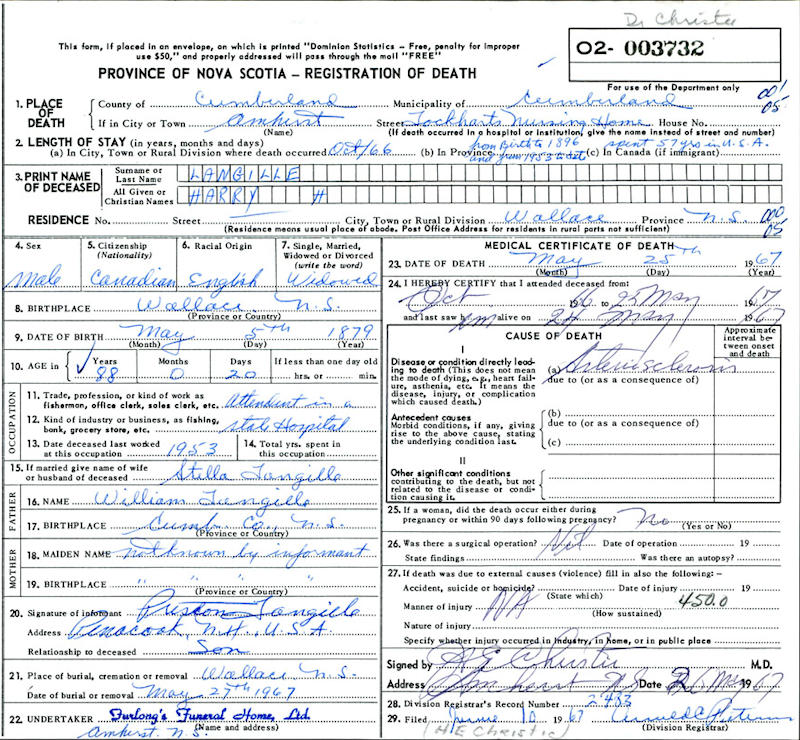 Dr Christie
This form, if placed in an envelope, on which is printed "Dominion Statistics – Free, penalty for improper
use $50," and properly addressed will pass through the mail "FREE"
02- 003732
PROVINCE OF NOVA SCOTIA – REGISTRATION OF DEATH
For use of the Department only
001
05
1. PLACE OF DEATH County of Cumberland Municipality of Cumberland
If in City or Town Amherst Street Lockharts Nursing Home House No.
(Name) (If death occurred in a hospital or institution, give the name instead of street and number)
2. LENGTH OF STAY (in years, months and days) from Birth to 1896 spent 57 yrs in U.S.A.
(a) In City, Town or Rural Division where death occurred Oct/66 (b) In Province and from 1953 to date (c) In Canada (if immigrant)
3. PRINT NAME OF DECEASED Surname or Last Name LANGILLE
All Given or Christian Names HARRY H
RESIDENCE No. Street City, Town or Rural Division Wallace Province N.S. 000
05
(Residence means usual place of abode. Post Office Address for residents in rural parts not sufficient)
4. Sex 5. Citizenship (Nationality) 6. Racial Origin 7. Single, Married, Widowed or Divorced (write the word)
Male Canadian English Widowed
8. BIRTHPLACE Wallace, N.S.
(Province or Country)
9. DATE OF BIRTH May 5th 1879
(Month) (Day) (Year)
10. AGE in Years Months Days If less than one day old
88 0 20 hrs. or min.
OCCUPATION
11. Trade, profession, or kind of work as
fisherman, office clerk, sales clerk, etc. Attendent in a
12. Kind of industry or business, as fishing,
bank, grocery store, etc. state Hospital
13. Date deceased last worked at this occupation 1953 14. Total yrs. spent in this occupation
15. If married give name of wife
or husband of deceased Stella Langille
FATHER
16. NAME William Langille
17. BIRTHPLACE Cumb. Co., N.S.
(Province or Country)
MOTHER
18. MAIDEN NAME not known by informant
19. BIRTHPLACE " " "
(Province or Country)
20. Signature of informant Preston Langille
Address Penacook, N.H., U.S.A
Relationship to deceased Son
21. Place of burial, cremation or removal Wallace N.S.
Date of burial or removal May 27th 1967
22. UNDERTAKER Furlong's Funeral Home, Ltd.
Amherst N.S. (Name and address)
MEDICAL CERTIFICATE OF DEATH
23. DATE OF DEATH May 25th 1967
(Month) (Day) (Year)
24. I HEREBY CERTIFY that I attended deceased from:
Oct 1966 to 25 May 1967
and last saw him alive on 24 May 1967
CAUSE OF DEATH
Approximate interval between onset and death
I
Disease or condition directly leading to death (This does not mean the mode of dying, e.g., heart failure, asthenia, etc. It means the disease, injury, or complication which caused death.)
(a) Arteriosclerosis
due to (or as a consequence of)
Antecedent causes
Morbid conditions, if any, giving rise to the above cause, stating the underlying condition last.
(b)
due to (or as a consequence of)
(c)
II
Other significant conditions
contributing to the death, but not related to the disease or condition causing it.
25. If a woman, did the death occur either during
pregnancy or within 90 days following pregnancy? No
(Yes or No)
26. Was there a surgical operation? Nil Date of operation 19
State findings Was there an autopsy?
27. If death was due to external causes (violence) fill in also the following:–
Accident, suicide or homicide? Date of injury 19
(State which) 450.0
Manner of injury NA
(How sustained)
Nature of injury
Specify whether injury occurred in industry, in home, or in public place
Signed by H E Christie M.D.
Address Amherst NS Date 26 May 1967
28. Division Registrar's Record Number 2483
29. Filed June 10 1967
(H E Christie) (Division Registrar)